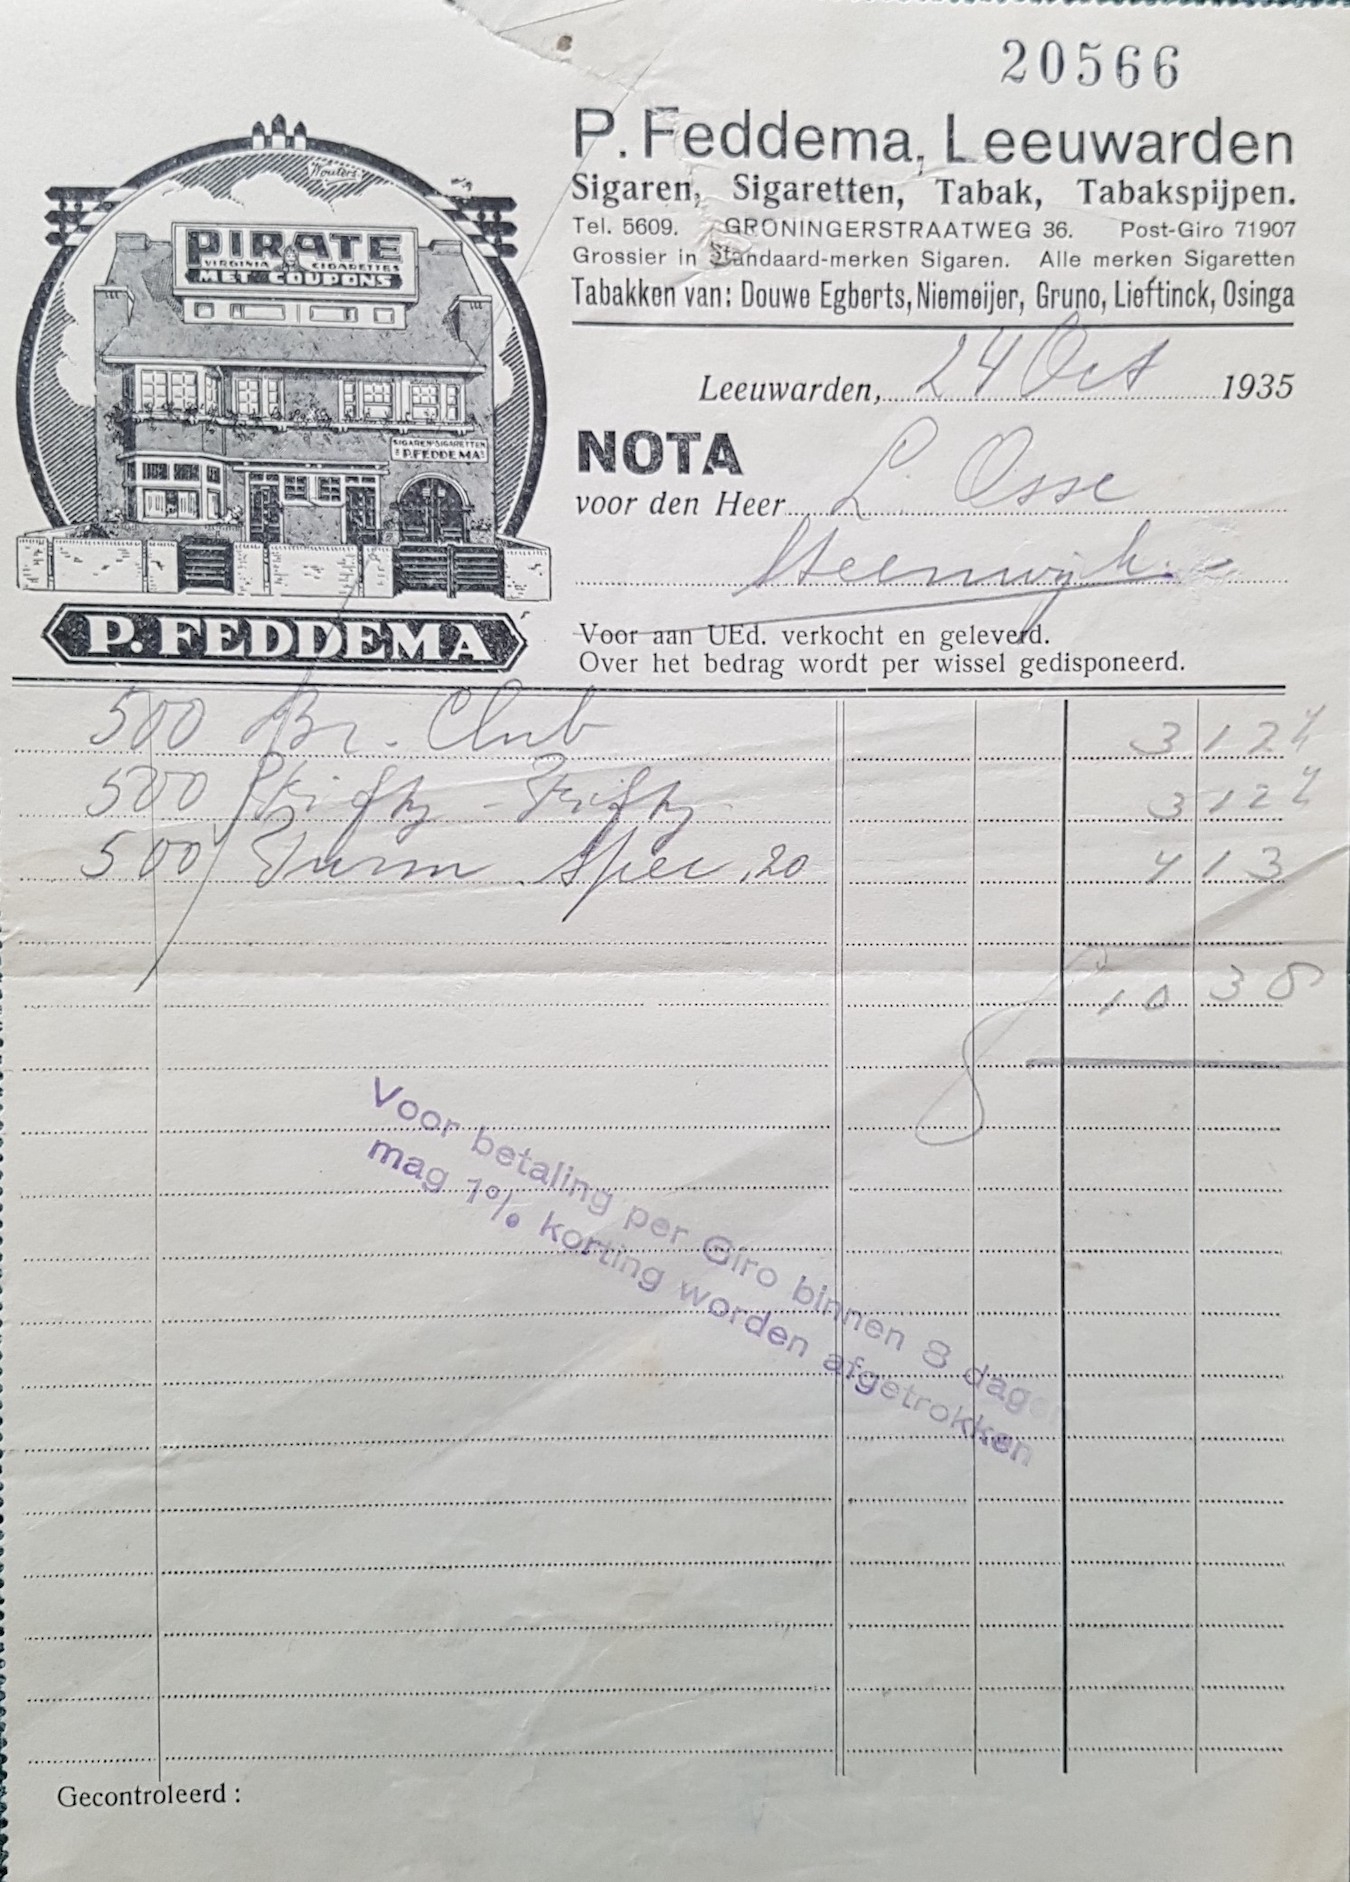 20566
P. Feddema, Leeuwarden
Sigaren, Sigaretten, Tabak, Tabakspijpen.
Tel. 5609. GRONINGERSTRAATWEG 36. Post-Giro 71907
Grossier in Standaard-merken Sigaren. Alle merken Sigaretten
Tabakken van: Douwe Egberts, Niemeijer, Gruno, Lieftinck, Osinga
Wouters
PIRATE
VIRGINIA CIGARETTES
MET COUPONS
SIGAREN*SIGARETTEN
P. FEDDEMA
P. FEDDEMA
Leeuwarden, 24 Oct 1935
NOTA
voor den Heer L. Osse
Steenwijk.
Voor aan UEd. verkocht en geleverd.
Over het bedrag wordt per wissel gedisponeerd.
500 Br. Club 3 12
500 Fifty - Fifty 3 12
500 Turm Spec. 20 4 13
10 38
Voor betaling per Giro binnen 8 dagen
mag 1% korting worden afgetrokken
Gecontroleerd :